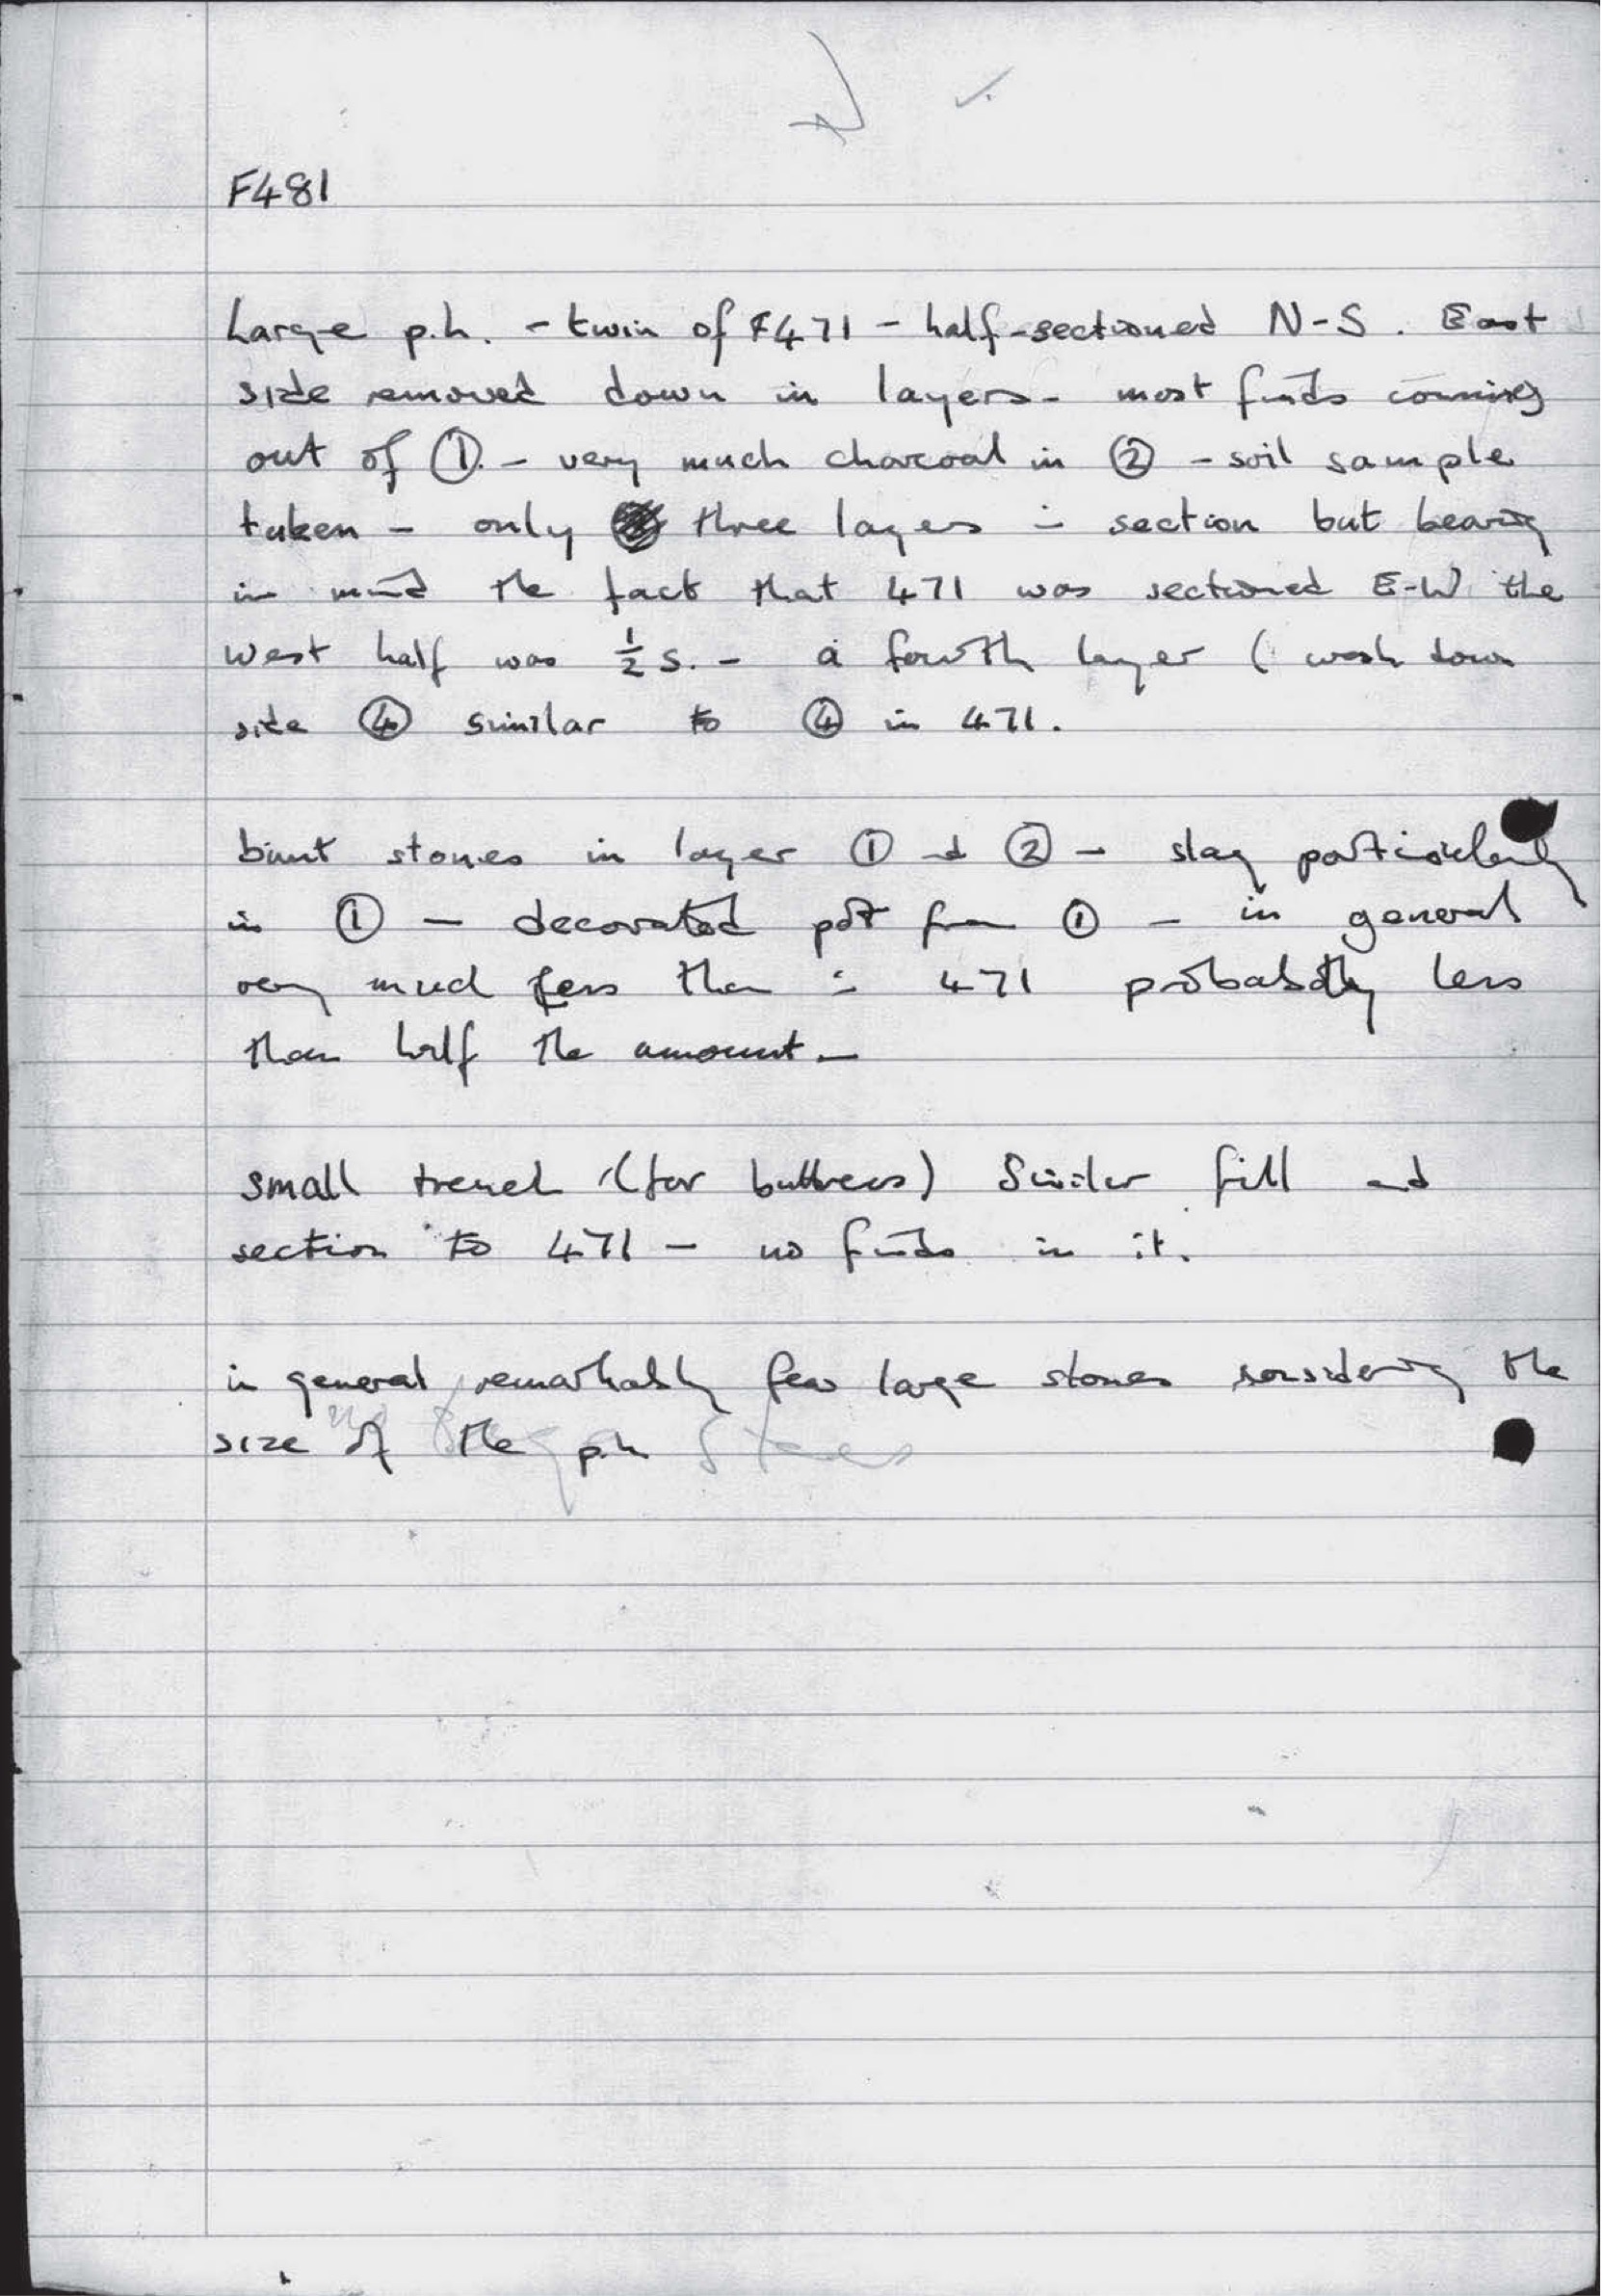 F481
Large p.h. - twin of F471 - half-sectioned N-S. East
side removed down in layers - most finds coming
out of ① - very much charcoal in ② - soil sample
taken - only three layers in section but bearing
in mind the fact that 471 was sectioned E-W the
west half was ½ s. - a fourth layer (wash down
side ④ similar to ④ in 471.
burnt stones in layer ① and ② - slag particularly
in ① - decorated pot from ① - in general
very much less than in 471 probably less
than half the amount -
small trench (for buttress) Similar fill and
section to 471 - no finds in it.
in general remarkably few large stones considering the
size of the p.h